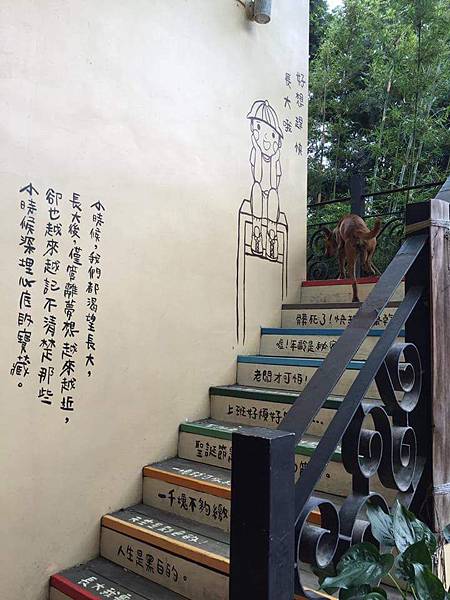 好想趕快
長大哦
小時候，我們都渴望長大，
長大後，僅管離夢想越來越近，
卻也越來越記不清楚那些
小時候深埋心底的寶藏。
死了！快
噓！年齡是秘
老闆才可怕！
上班好煩好
聖誕節
一千塊不夠繳
人生是黑白的。
長大